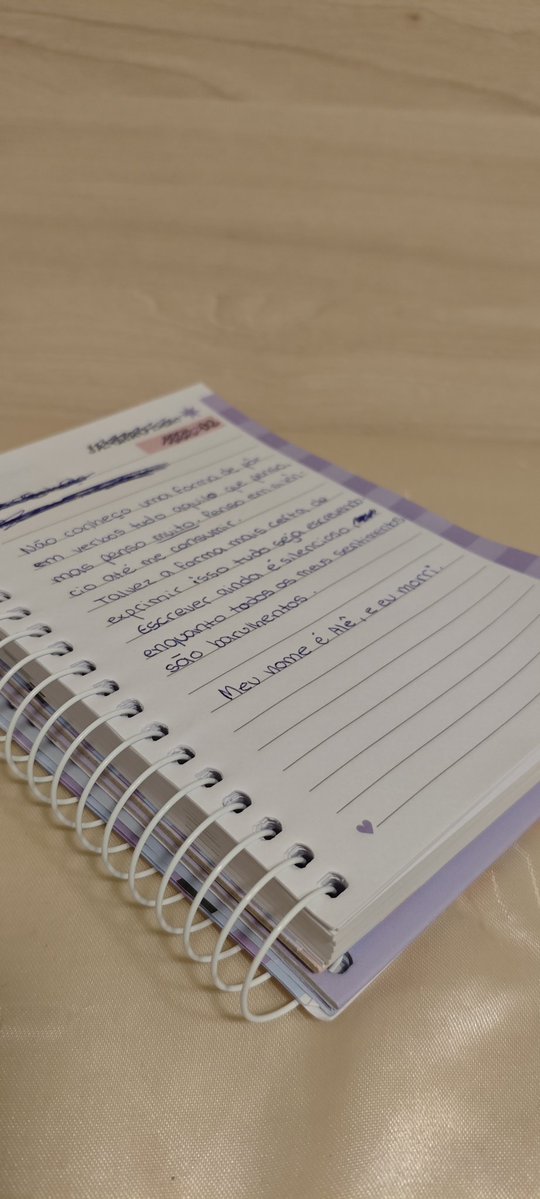 Não conheço uma forma de pôr
em versos tudo aquilo que penso,
mais penso muito. Penso em silên-
cio até me consumir.
Talvez a forma mais certa de
exprimir isso tudo seja escrevendo
Escrever ainda é silencioso
enquanto todos os meus sentimentos
são barulhentos.
Meu nome é Alê, e eu morri.